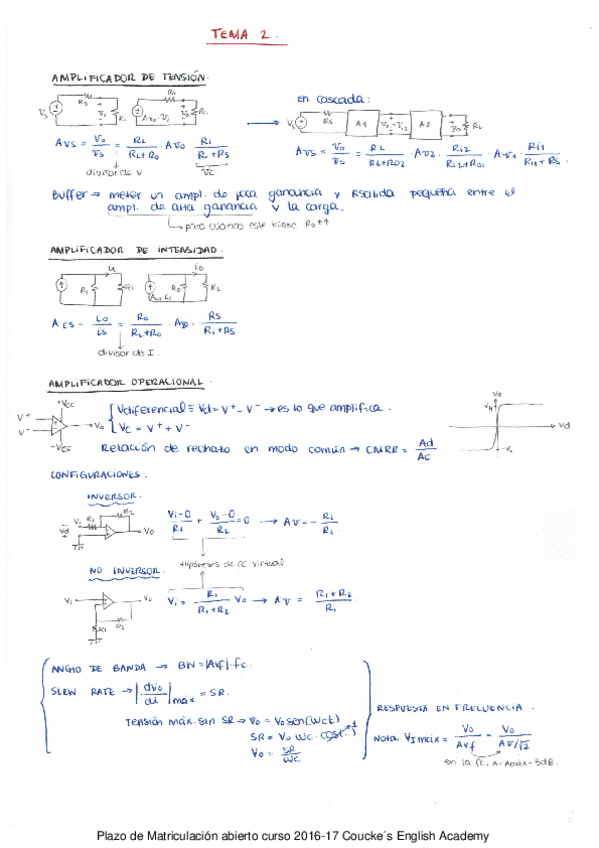 TEMA 2.
AMPLIFICADOR DE TENSIÓN.
En cascada:
Avs = Vo/Vs = RL/(RL+Ro) · Avo · Ri/(Ri+Rs)
divisor de V
Avs = Vo/Vs = RL/(RL+RO2) · Av2 · Ri2/(Ri2+RO1) · Av1 · Ri1/(Ri1+Rs).
Buffer → meter un ampl. de poca ganancia y Rsalida pequeña entre el
ampl. de alta ganancia y la carga.
para cuando este tiene Ro↑↑
AMPLIFICADOR DE INTENSIDAD.
Acs = Lo/Ls = Ro/(RL+Ro) · Aιo · Rs/(Ri+Rs)
divisor de I.
AMPLIFICADOR OPERACIONAL.
+Vcc
V+
V-
-Vcc
Vo
Vdiferencial ≡ Vd = V+ - V- → es lo que amplifica.
Vc = V+ + V-
Relación de rechazo en modo común → CMRR = Ad/Ac
Vo
Vd
CONFIGURACIONES:
INVERSOR.
Vi R1 R2 Vo
(Vi-0)/R1 + (Vo-0)/R2 = 0 → Av = - R2/R1
Hipótesis de CC virtual
NO INVERSOR.
Vi Vo R1 R2
Vi = R1/(R1+R2) Vo → Av = (R1+R2)/R1.
ANCHO DE BANDA → BW = |Avf| · fc.
SLEW RATE → |dvo/dt| máx = SR.
Tensión máx. sin SR → Vo = Vo sen(wct)
SR = Vo wc · cos( ) 1
Vo = SR/wc
RESPUESTA EN FRECUENCIA.
Nota: VImáx = Vo/Avf = Vo/(Av/√2)
en la fc, A = Amáx - 3dB.
Plazo de Matriculación abierto curso 2016-17 Coucke´s English Academy